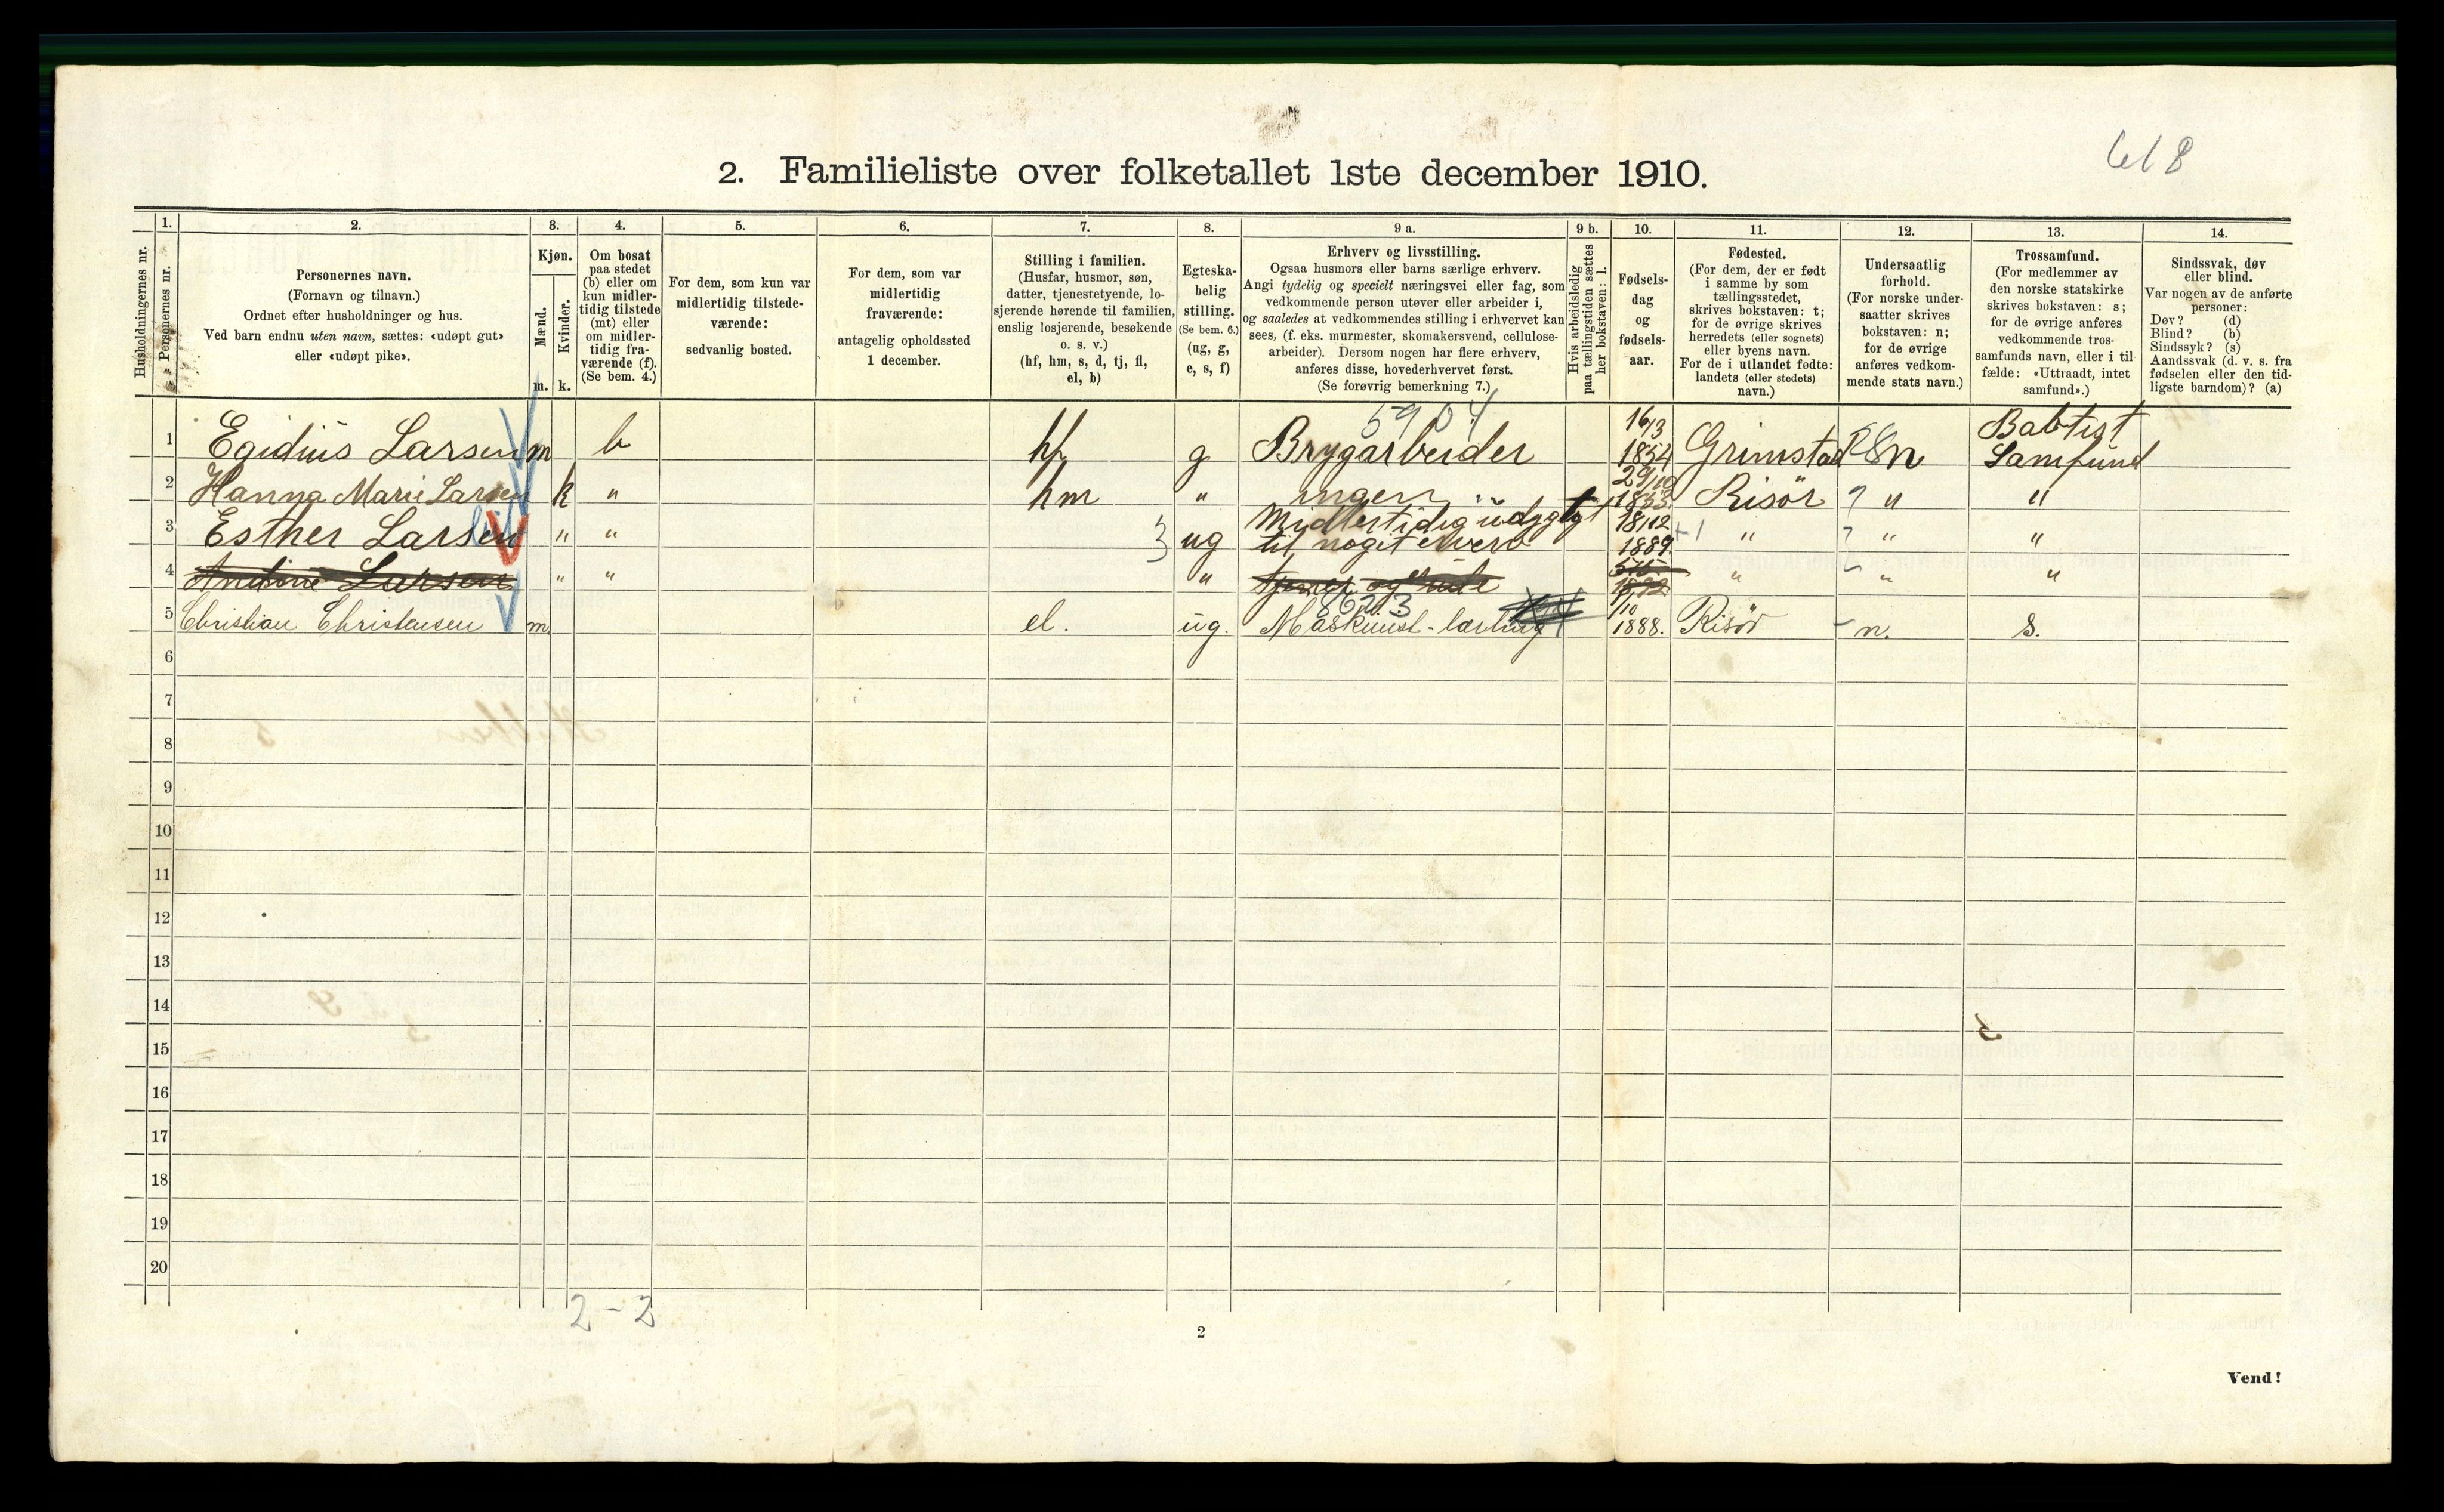 618
2. Familieliste over folketallet 1ste december 1910.
Husholdningernes nr.
1.
Personernes nr.
2.
Personernes navn.
(Fornavn og tilnavn.)
Ordnet efter husholdninger og hus.
Ved barn endnu uten navn, sættes: «udøpt gut»
eller «udøpt pike».
3.
Kjøn.
Mænd.
m.
Kvinder.
k.
4.
Om bosat
paa stedet
(b) eller om
kun midler-
tidig tilstede
(mt) eller
om midler-
tidig fra-
værende (f).
(Se bem. 4.)
5.
For dem, som kun var
midlertidig tilstede-
værende:
sedvanlig bosted.
6.
For dem, som var
midlertidig
fraværende:
antagelig opholdssted
1 december.
7.
Stilling i familien.
(Husfar, husmor, søn,
datter, tjenestetyende, lo-
sjerende hørende til familien,
enslig losjerende, besøkende
o. s. v.)
(hf, hm, s, d, tj, fl,
el, b)
8.
Egteska-
belig
stilling.
(Se bem. 6.)
(ug, g,
e, s, f)
9 a.
Erhverv og livsstilling.
Ogsaa husmors eller barns særlige erhverv.
Angi tydelig og specielt næringsvei eller fag, som
vedkommende person utøver eller arbeider i,
og saaledes at vedkommendes stilling i erhvervet kan
sees, (f. eks. murmester, skomakersvend, cellulose-
arbeider). Dersom nogen har flere erhverv,
anføres disse, hovederhvervet først.
(Se forøvrig bemerkning 7.)
9 b.
Hvis arbeidsledig
paa tællingstiden sættes
her bokstaven: l.
10.
Fødsels-
dag
og
fødsels-
aar.
11.
Fødested.
(For dem, der er født
i samme by som
tællingsstedet,
skrives bokstaven: t;
for de øvrige skrives
herredets (eller sognets)
eller byens navn.
For de i utlandet fødte:
landets (eller stedets)
navn.)
12.
Undersaatlig
forhold.
(For norske under-
saatter skrives
bokstaven: n;
for de øvrige
anføres vedkom-
mende stats navn.)
13.
Trossamfund.
(For medlemmer av
den norske statskirke
skrives bokstaven: s;
for de øvrige anføres
vedkommende tros-
samfunds navn, eller i til-
fælde: «Uttraadt, intet
samfund».)
14.
Sindssvak, døv
eller blind.
Var nogen av de anførte
personer:
Døv? (d)
Blind? (b)
Sindssyk? (s)
Aandssvak (d. v. s. fra
fødselen eller den tid-
ligste barndom)? (a)
1 Egidius Larsen m b hf g 5904 Brygarbeider 16/3 1854 Grimstad n Babtist Samfund
2 Hanna Marie Larsen k " hm " ingen 29/10 1853 Risör " "
3 Esther Larsen " " 3 ug Midlertidig udygtigt til noget erverv 18/12 1889 " " "
4 Larsen " " " " " "
5 Christian Christensen m. el. ug. 8623 Maskinist-lærling /10 1888. Risör n. s.
6
7
8
9
10
11
12
13
14
15
16
17
18
19
20
2 - 2
2
Vend!